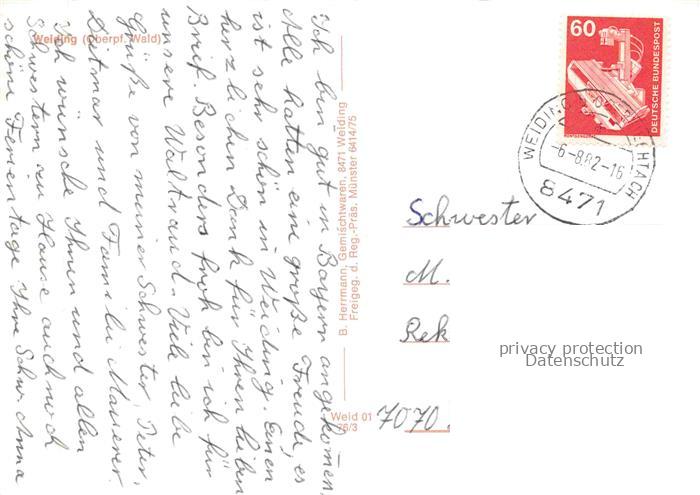 Weiding (Oberpf. Wald)
Ich bin gut in Bayern angekommen.
Alle hatten eine große Freude, es
ist sehr schön in Weiding. Einen
herzlichen Dank für Ihren lieben
Brief. Besonders froh bin ich für
unsere Waltraud. Viele liebe
Grüße von meiner Schwester, Peter,
Dietmar und Familie Mauerer.
Ich wünsche Ihnen und allen
Schwestern zu Hause auch noch
schöne Ferientage Ihre Schw. Anna
B. Herrmann, Gemischtwaren, 8471 Weiding
Freigeg. d. Reg.-Präs. Münster 6414/75
Weid 01
76/3
60
DEUTSCHE BUNDESPOST
WEIDING
-6-8.82-16
8471
Schwester
M.
Rek
7070.
privacy protection
Datenschutz